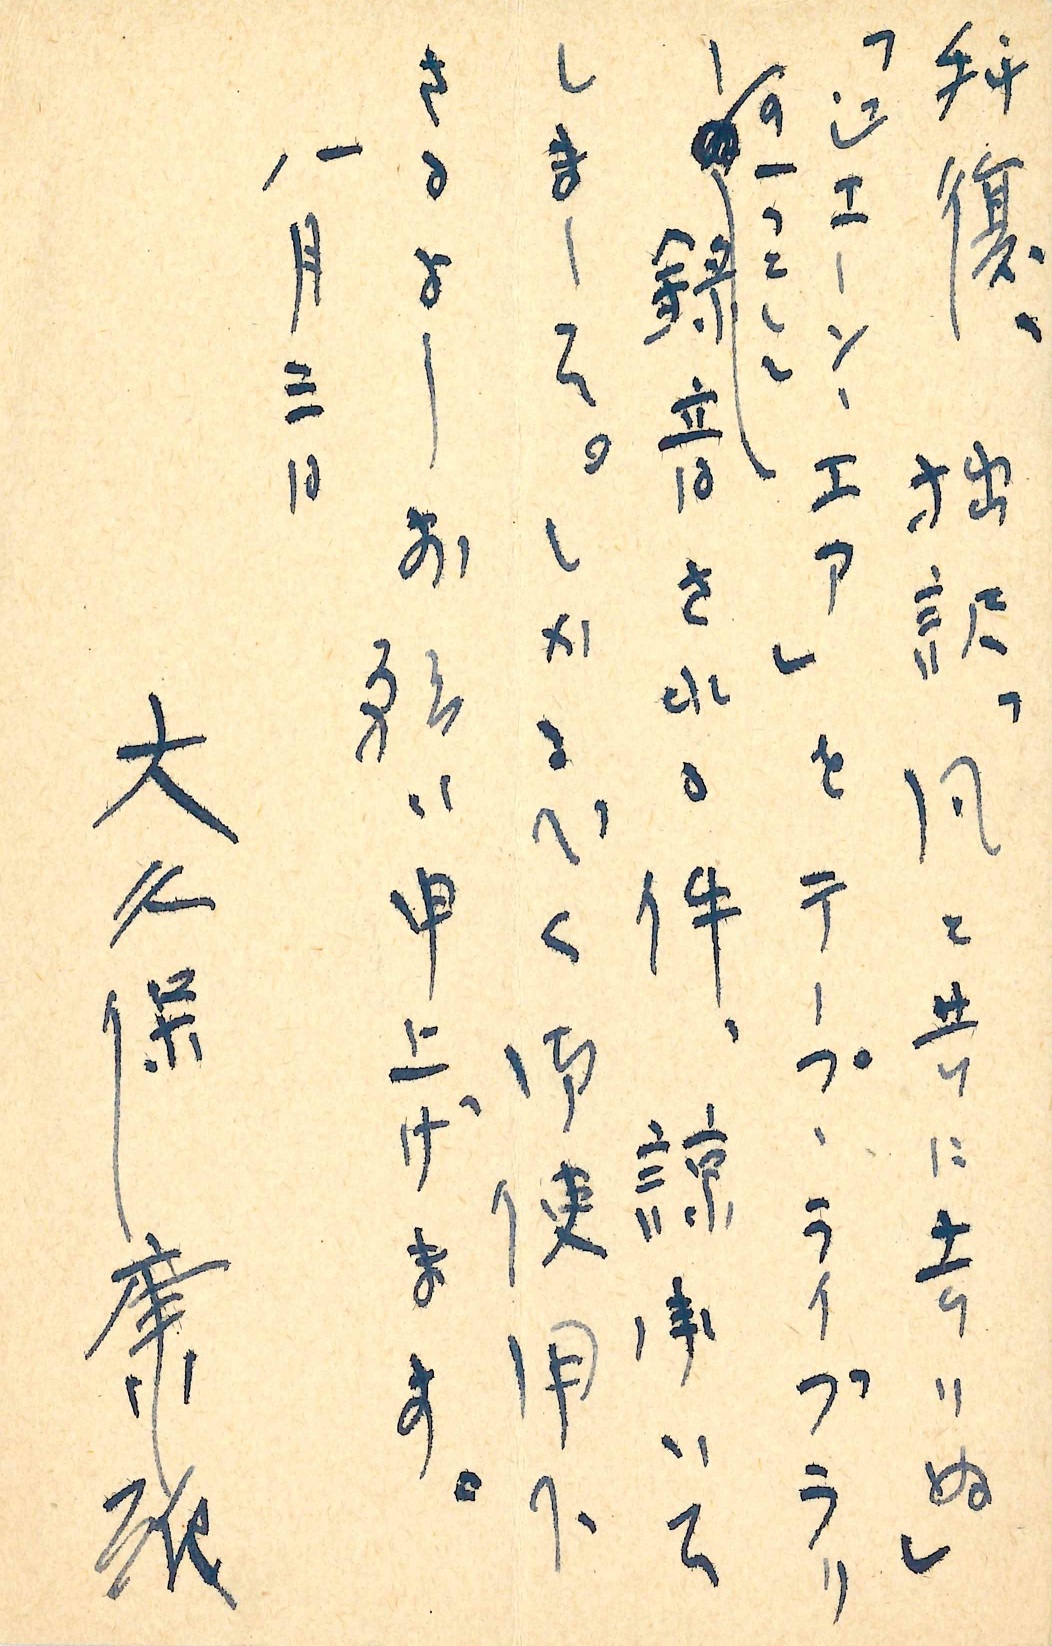 拝復、拙訳「風と共に去りぬ」
「ジェーン・エア」をテープ・ライブラリ
ーの一つとして
録音される件、諒承いた
しました。しかるべく御使用下
さるよーお願い申上げます。
八月三日
大久保康雄